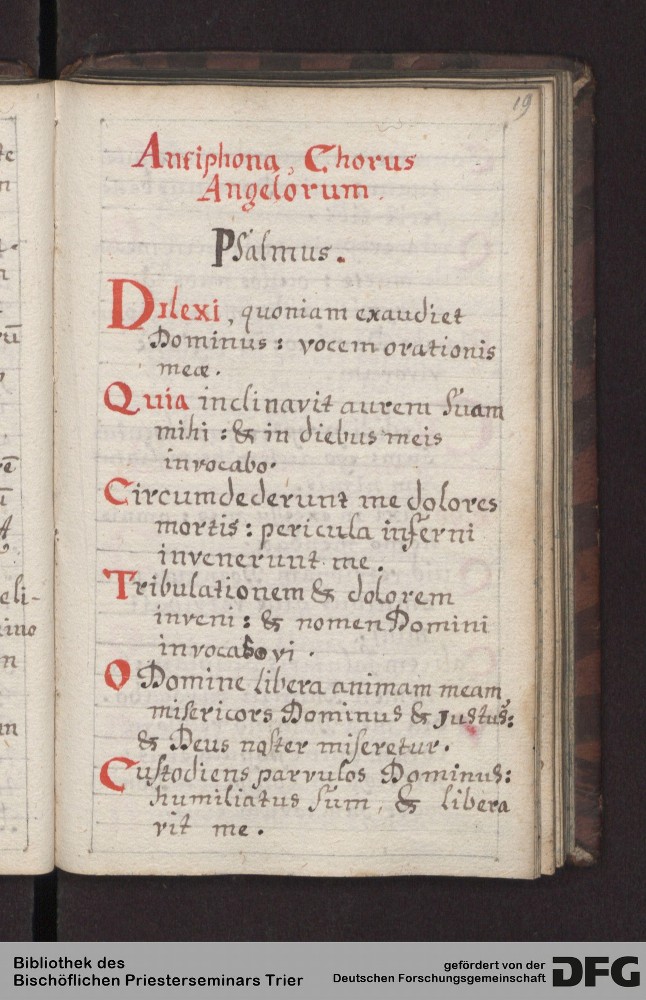 19
Antiphona, Chorus
Angelorum.
Psalmus.
Dilexi, quoniam exaudiet
Dominus: vocem orationis
meæ.
Quia inclinavit aurem suam
mihi: & in diebus meis
invocabo.
Circumdederunt me dolores
mortis: pericula inferni
invenerunt me.
Tribulationem & dolorem
inveni: & nomen Domini
invocabo vi.
O Domine libera animam meam,
misericors Dominus & Justus:
& Deus noster miseretur.
Custodiens parvulos Dominus:
humiliatus sum, & libera
vit me.
Bibliothek des
Bischöflichen Priesterseminars Trier
gefördert von der
Deutschen Forschungsgemeinschaft
DFG